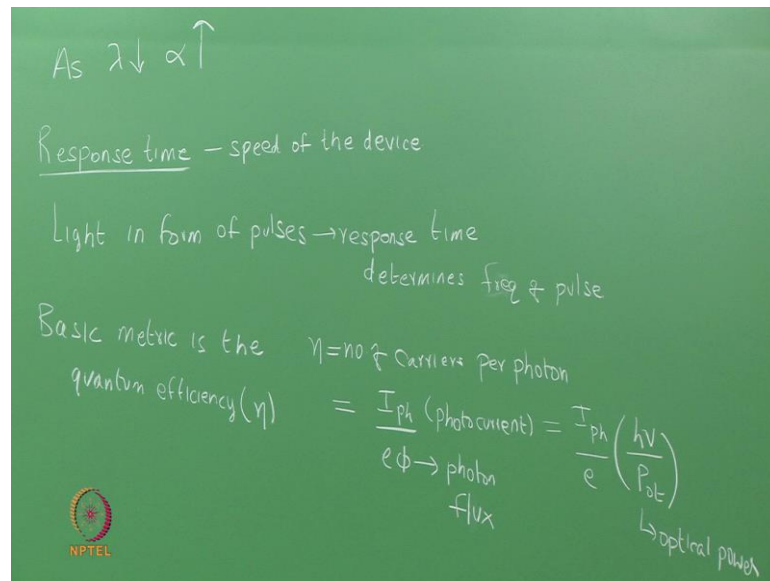 As λ↓ α↑
Response time – speed of the device
Light in form of pulses → response time
determines freq of pulse
Basic metric is the
quantum efficiency (η)
η = no of carriers per photon
= I_ph (photocurrent) / eϕ → photon flux = I_ph / e (hν / P_ot)
↳ optical power
NPTEL